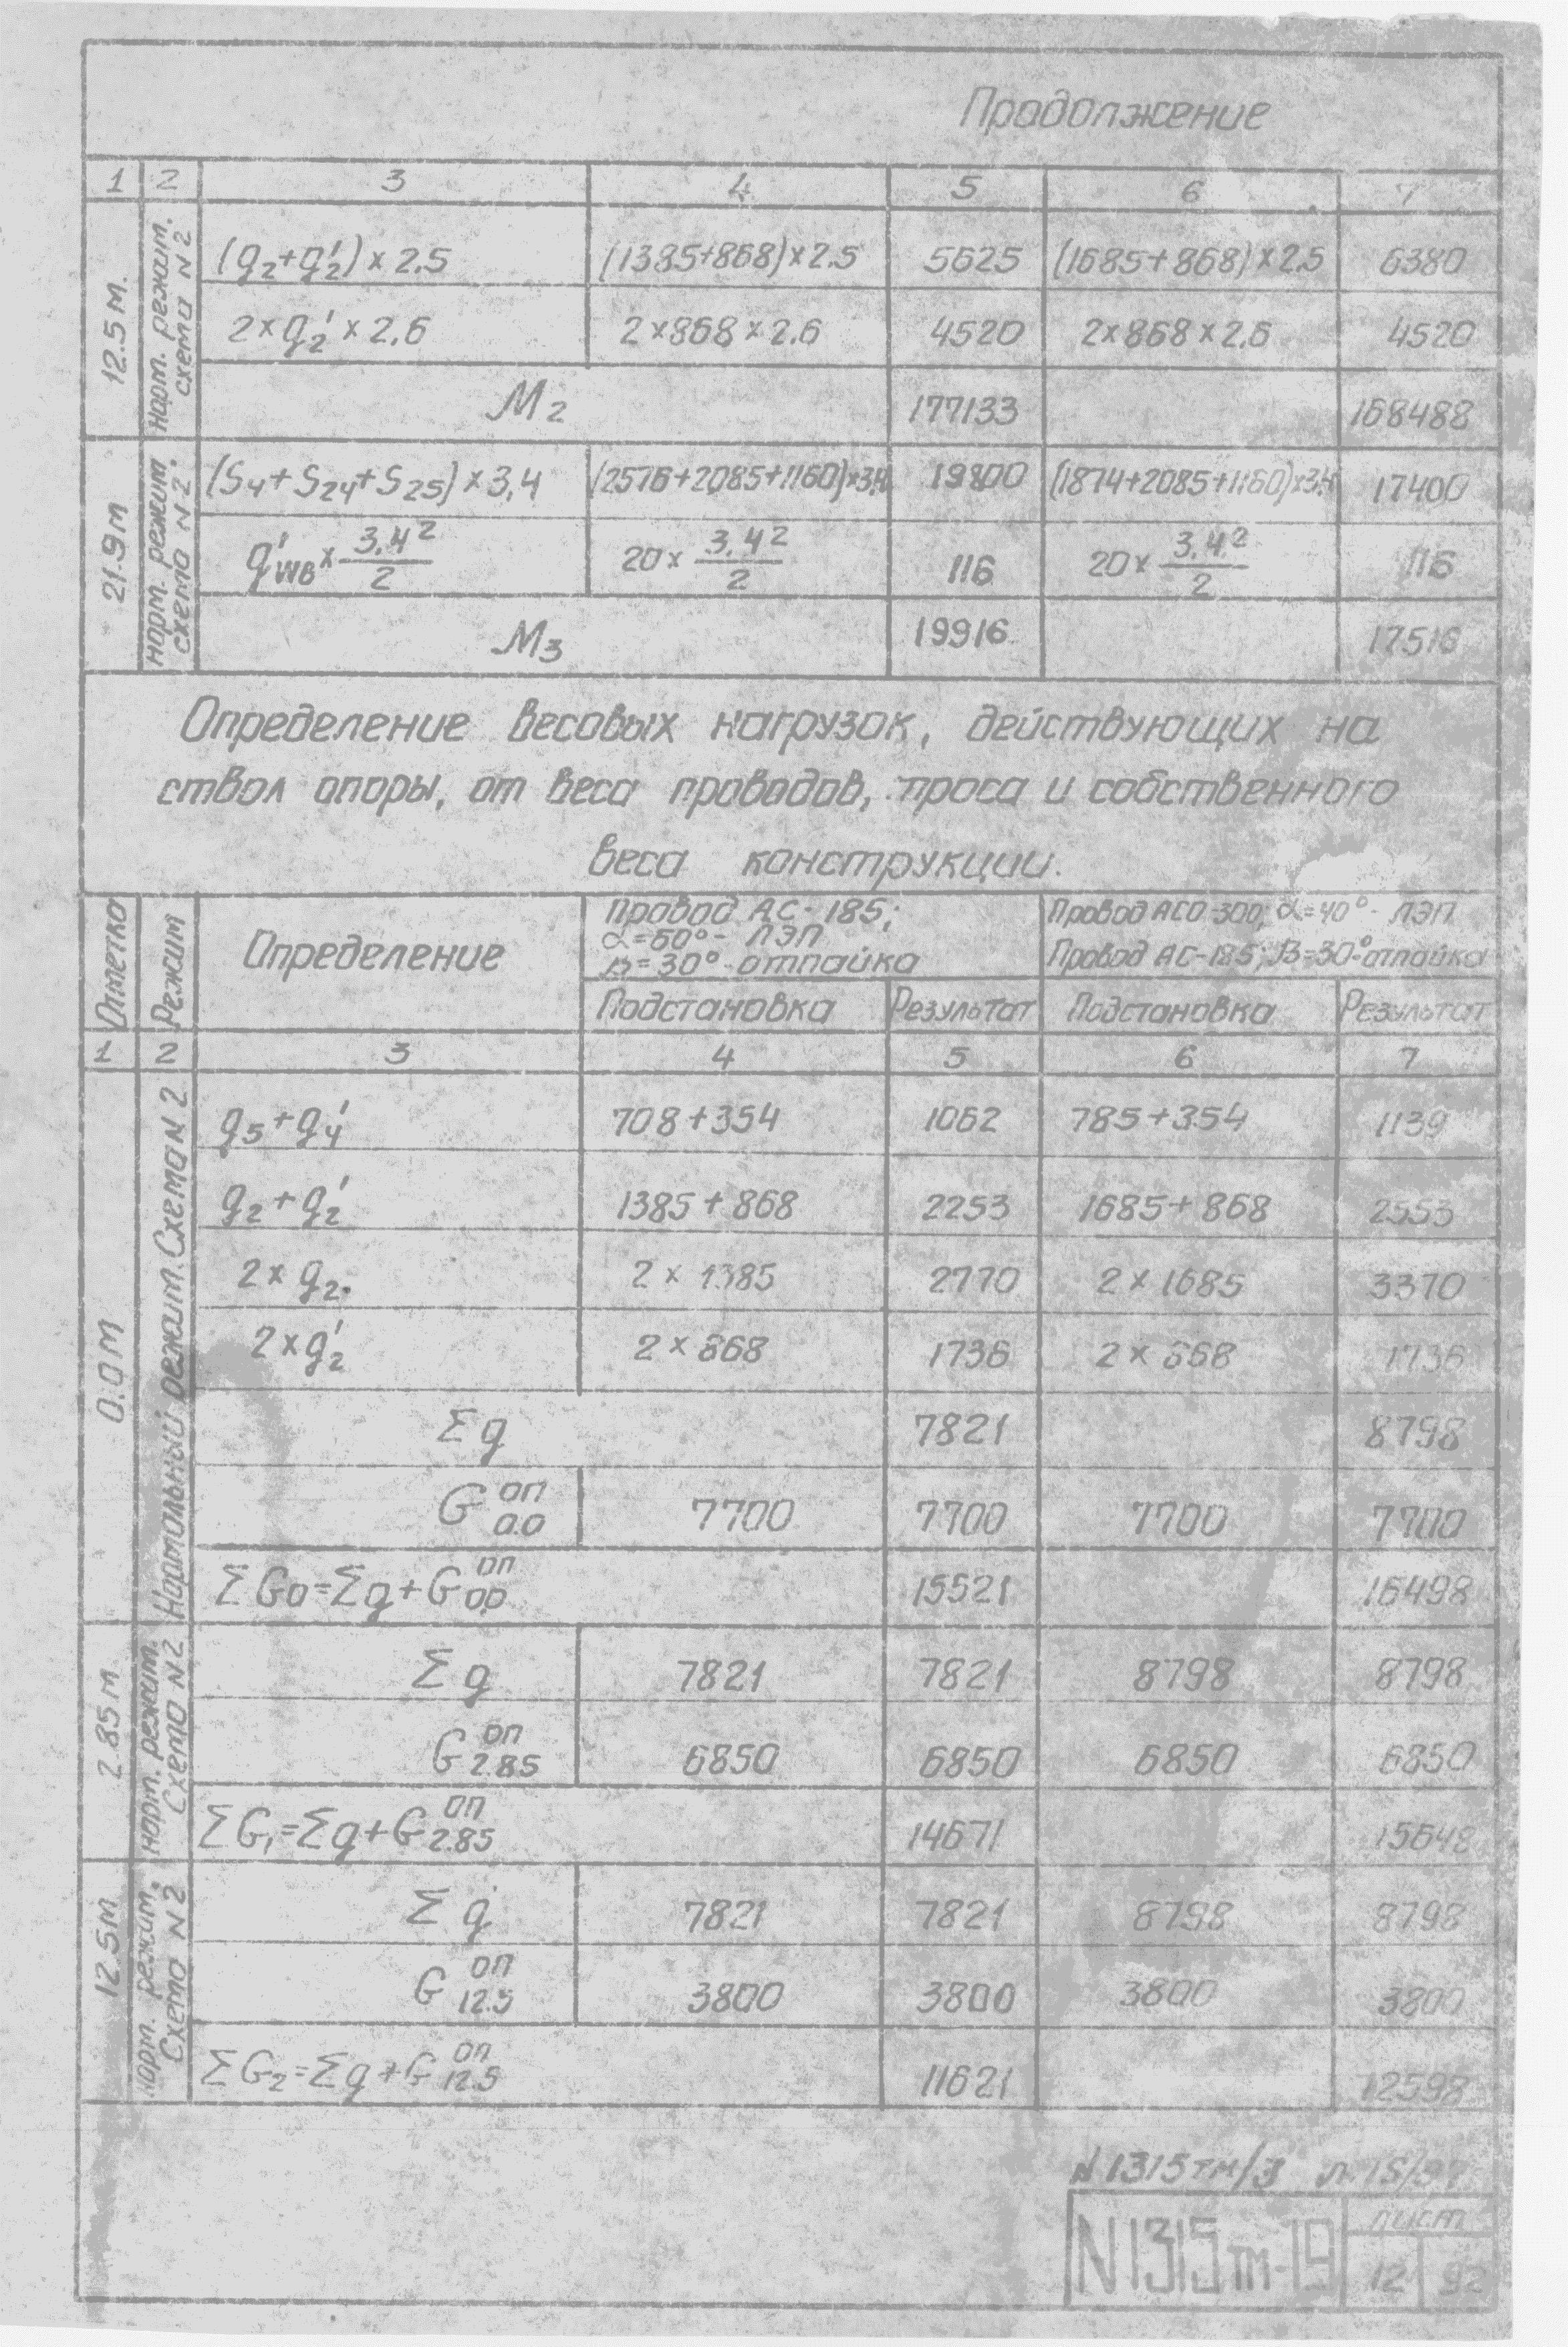 Продолжение
1 2 3 4 5 6 7
12.5 м. норм. режим. схема N 2
(q2+q2')×2.5 (1385+868)×2.5 5625 (1685+868)×2.5 6380
2×q2'×2.6 2×868×2.6 4520 2×868×2.6 4520
M2 177133 168488
21.9м норм. режим схема N 2.
(S4+S24+S25)×3,4 (2576+2085+1160)×3,4 19800 (1874+2085+1160)×3,4 17400
q'wв×3.4²/2 20×3.4²/2 116 20×3.4²/2 116
M3 19916 17516
Определение весовых нагрузок, действующих на
ствол опоры, от веса проводов, троса и собственного
веса конструкции.
Отметка Режим Определение
Провод АС-185; Провод АСО-300; α=40°- ЛЭП
α=60°- ЛЭП
β=30°-отпайка Провод АС-185; β=30°-отпайка
Подстановка Результат Подстановка Результат
1 2 3 4 5 6 7
0.0 м Нормальный режим. Схема N 2
q5+q4' 708+354 1062 785+354 1139
q2+q2' 1385+868 2253 1685+868 2553
2×q2. 2×1385 2770 2×1685 3370
2×q2' 2×868 1736 2×868 1736
Σq 7821 8798
G оп 0.0 7700 7700 7700 7700
ΣG0=Σq+G оп 0.0 15521 16498
2.85 м норм. режим. Схема N 2
Σq 7821 7821 8798 8798
G оп 2.85 6850 6850 6850 6850
ΣG1=Σq+G оп 2.85 14671 15648
12.5м норм. режим. Схема N 2
Σq 7821 7821 8798 8798
G оп 12.5 3800 3800 3800 3800
ΣG2=Σq+G оп 12.5 11621 12598
N 1315тм/3 л.
N1315тм-19 лист
12 92